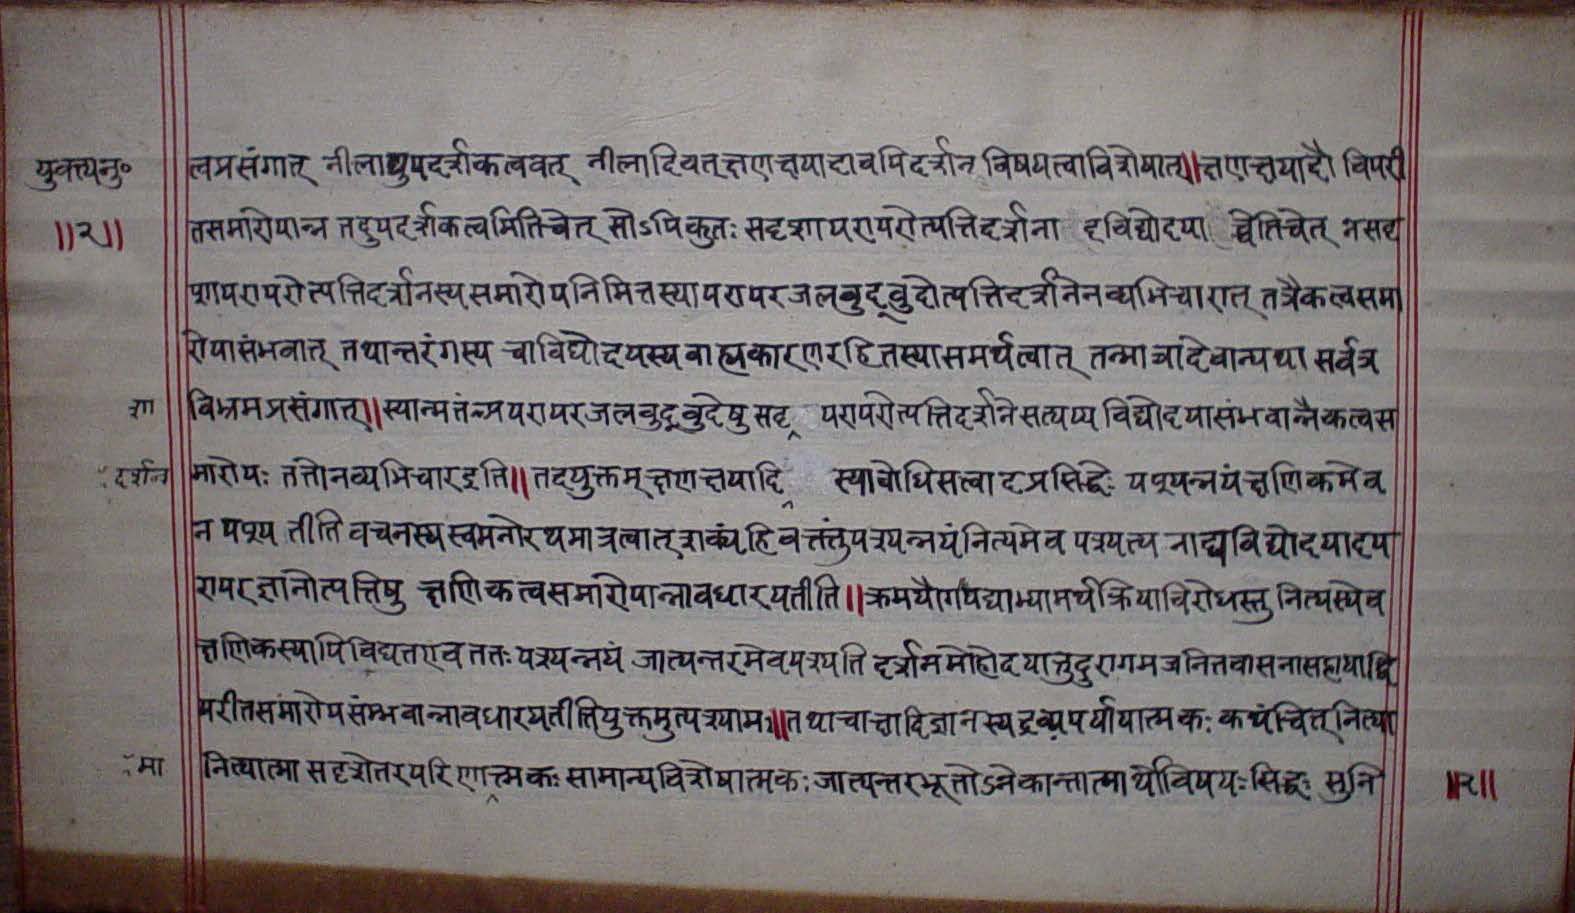 युक्त्यनु॰
॥२॥
त्वप्रसंगात् नीलाद्युपदर्शकत्ववत् नीलादिवत् क्षणक्षयादावपि दर्शन विषयत्वाविशेषात्॥क्षणक्षयादौ विपरी
तसमारोपान्न तदुपदर्शकत्वमितिचेत् सोऽपि कुतः सदृशापरापरोत्पत्तिदर्शना दविद्योदया च्चेतिचेत् न सदृ
शापरापरोत्पत्तिदर्शनस्य समारोपनिमित्तस्यापरापरजलबुद्बुदोत्पत्तिदर्शनेन व्यभिचारात् तत्रैकत्वसमा
रोपासंभवात् तथान्तरंगस्य चाविद्योदयस्य बाह्यकारणरहितस्यासमर्थत्वात् तन्मात्रादेवान्यथा सर्वत्र
शा
विभ्रमप्रसंगात्॥स्यान्मतंन्मपरापरजलबुद्बुदेषु सदृ‸ परापरोत्पत्तिदर्शने सत्यप्यविद्योदयासंभवान्नैकत्वस
दर्शन
मारोपः ततो न व्यभिचार इति॥तदयुक्तम् क्षणक्षयादि‸ स्याबोधिसत्वादप्रसिद्धेः पश्यन्नयं क्षणिकमेव
न पश्य तीति वचनस्य स्वमनोरथमात्रत्वात् शक्यं हि वक्तुं पश्यन्नयं नित्यमेव पश्यत्य नाद्यविद्योदयादप
रापरज्ञानोत्पत्तिषु क्षणिकत्वसमारोपान्नावधारयतीति॥क्रमयौगपद्याभ्यामर्थक्रियाविरोधस्तु नित्यस्येव
क्षणिकस्यापि विद्यत एव ततः पश्यन्नयं जात्यन्तरमेव पश्यति दर्शनमोहोदयात्तु दुरागमजनितवासनासहायाद्वि
परीतसमारोपसंभवान्नावधारयतीति युक्तमुत्पश्यामः॥तथा चाक्षादिज्ञानस्य द्रव्यपर्यायात्मकः कथंचित् नित्या
मा
नित्यात्मा सदृशेतरपरिणा‸त्मकः सामान्यविशेषात्मकः जात्यन्तरभूतोऽनेकान्तात्मार्थो विषयः सिद्धः सुनि
॥२॥